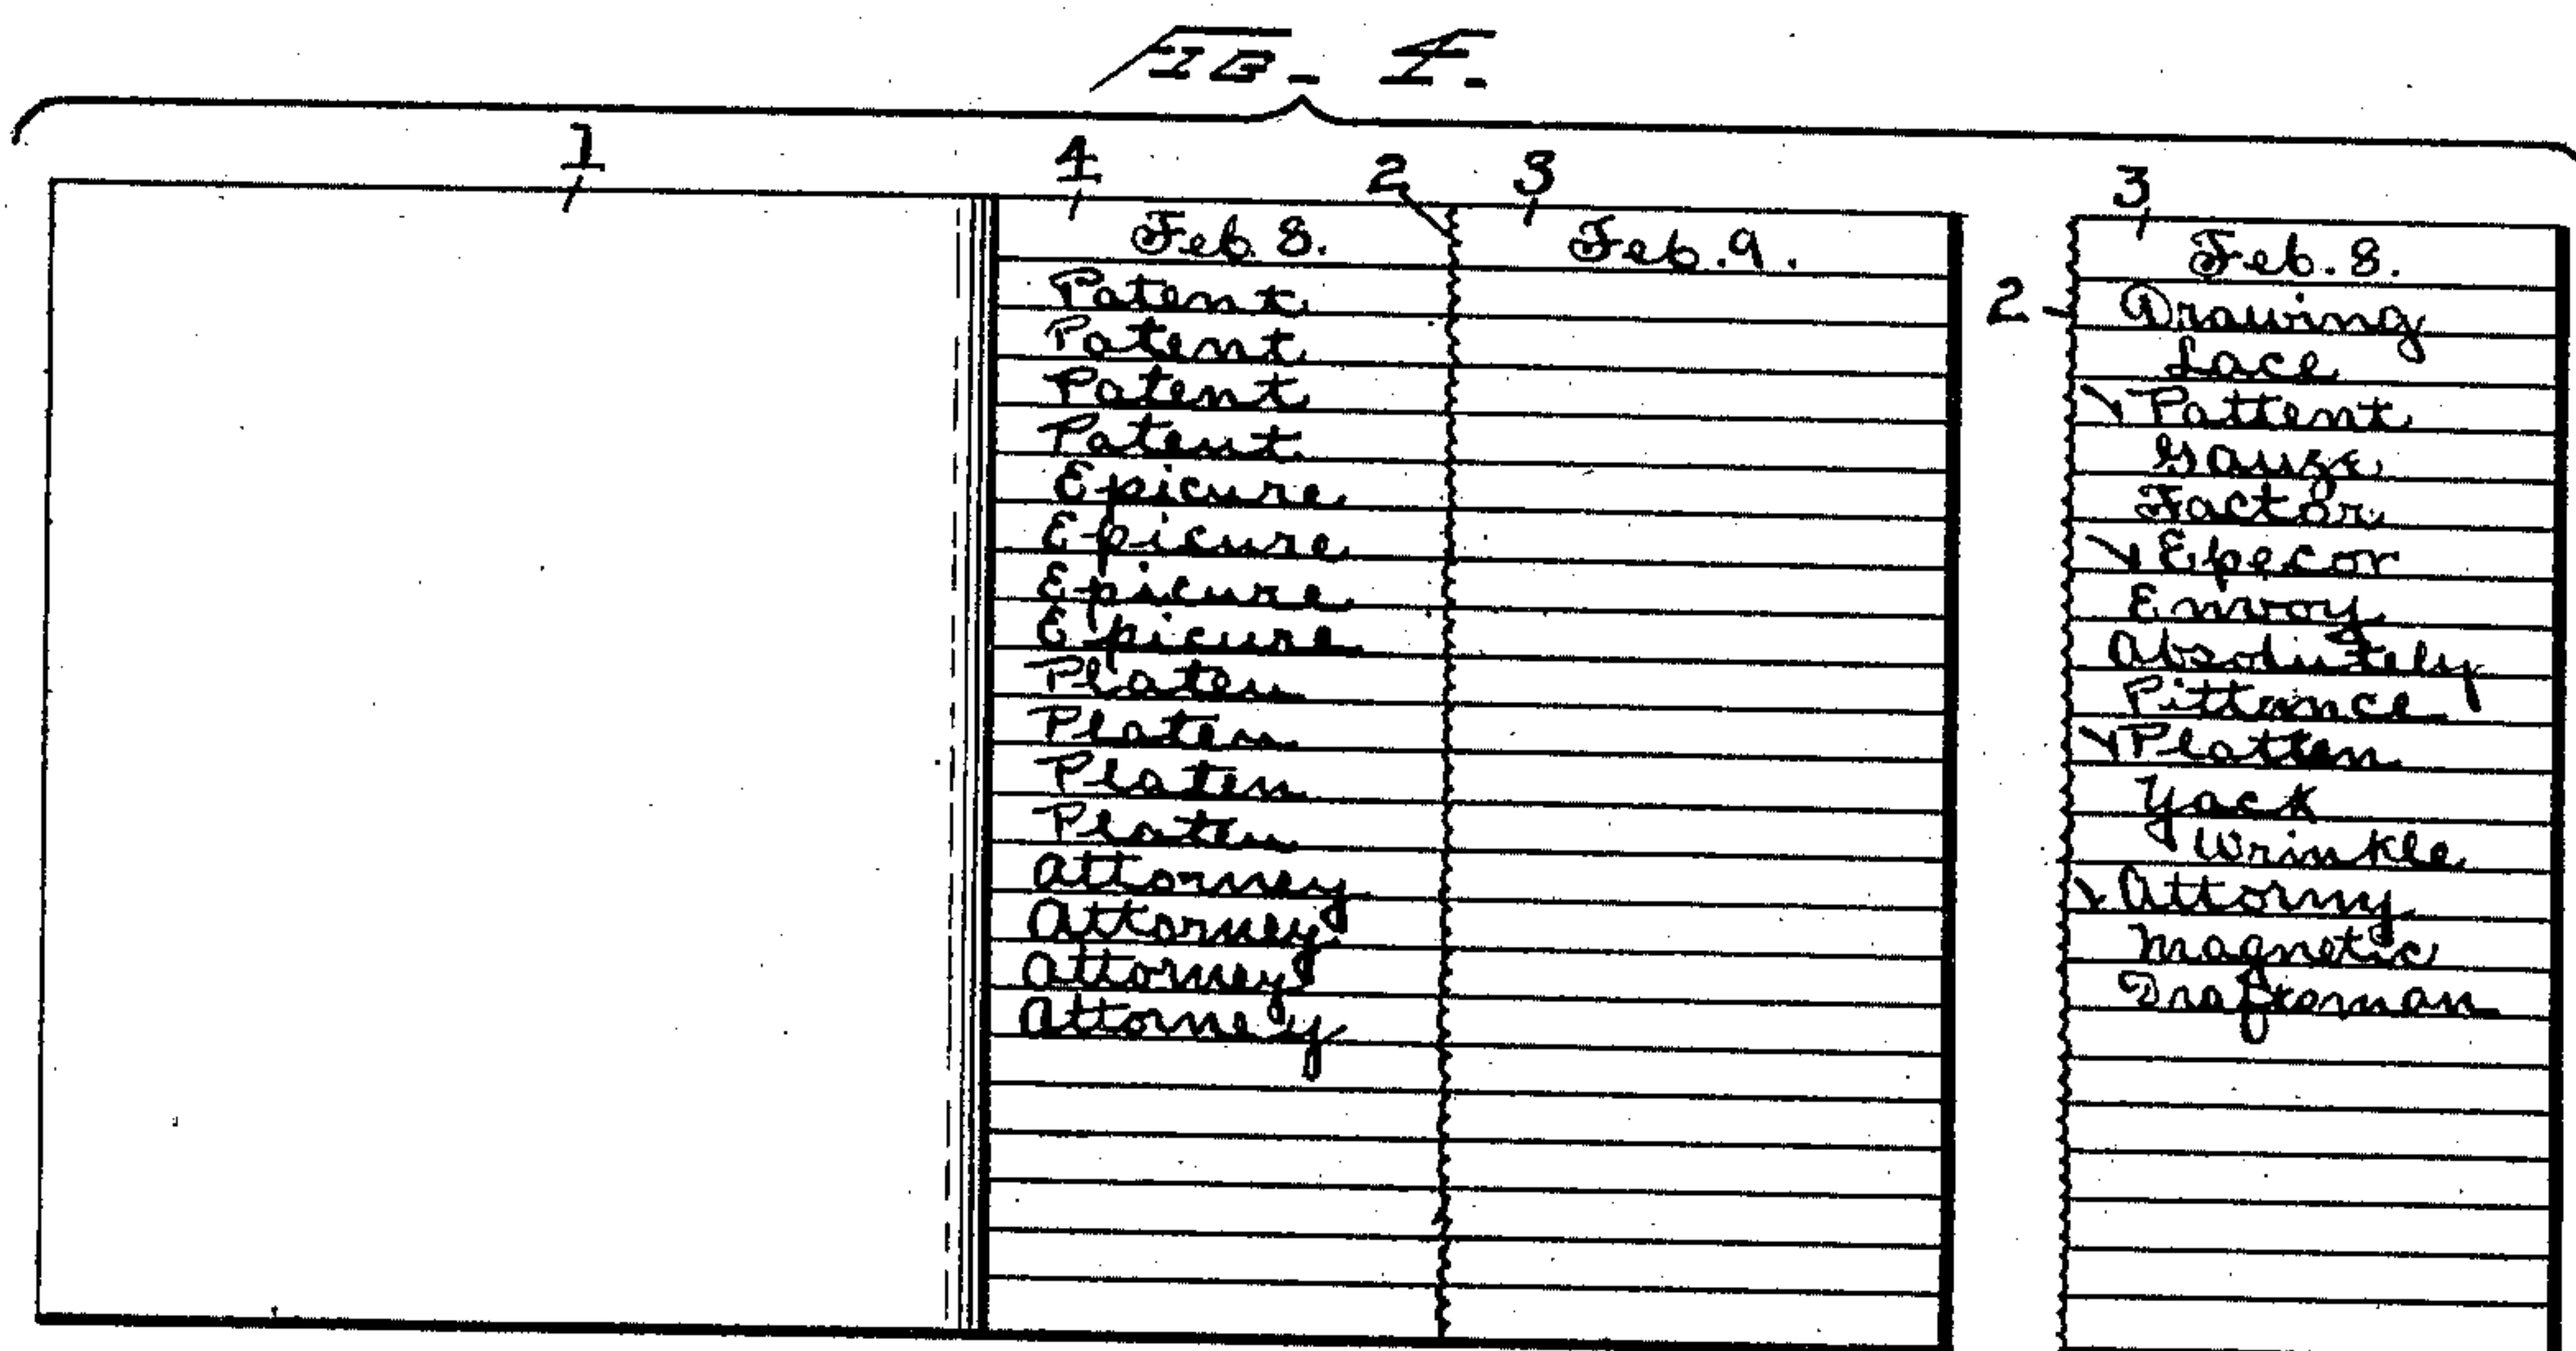 FIG- 1.
1
1
2
3
3
Feb. 8.
Patent
Patent
Patent
Patent
Epicure
Epicure
Epicure
Epicure
Platen
Platen
Platen
Platen
Attorney
Attorney
Attorney
Attorney
Feb. 9.
2
Feb. 8.
Drawing
Lace
Pattent
Gauze
Factor
Epecor
Envoy
Absolutely
Pittance
Platten
Yack
Wrinkle
Attorny
Magnetic
Draftsman